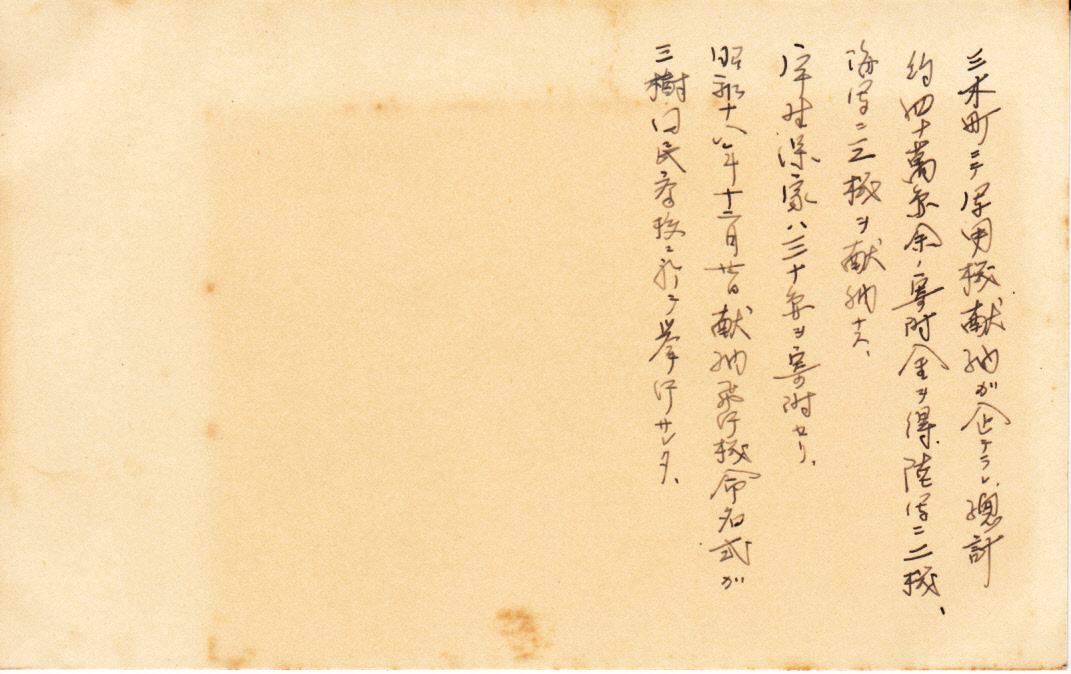 三木町ニテ軍用機献納ガ企テラレ、總計
約四十萬余ノ寄附金ヲ得、陸軍ニ二機、
海軍ニ三機ヲ献納ナス、
家ハ三十ヲ寄附セリ、
昭和十八年十二月廿日献納飛行機命名式ガ
三樹国民学校ニ於テ挙行サレタ、